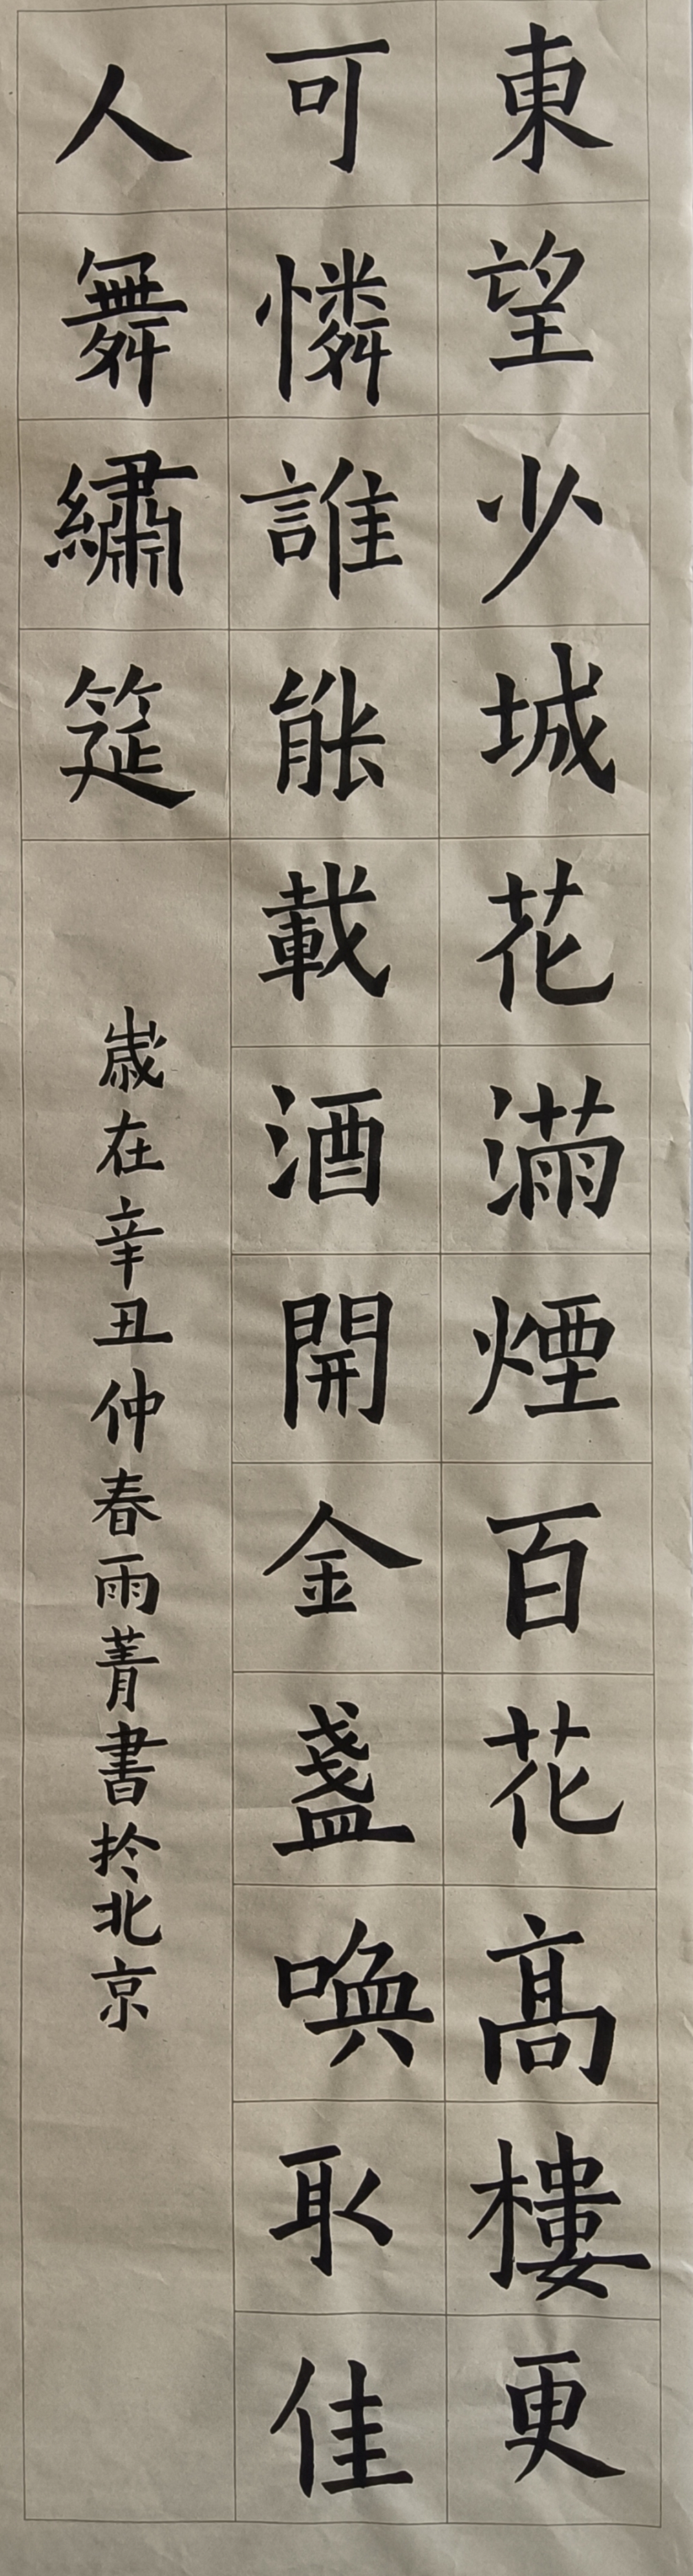 東望少城花滿煙百花高樓更
可憐誰能載酒開金盞喚取佳
人舞繡筵
歲在辛丑仲春雨菁書於北京